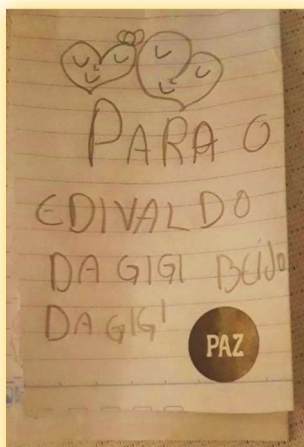 PARA O
EDIVALDO
DA GIGI BEIJO
DA GIGI
PAZ